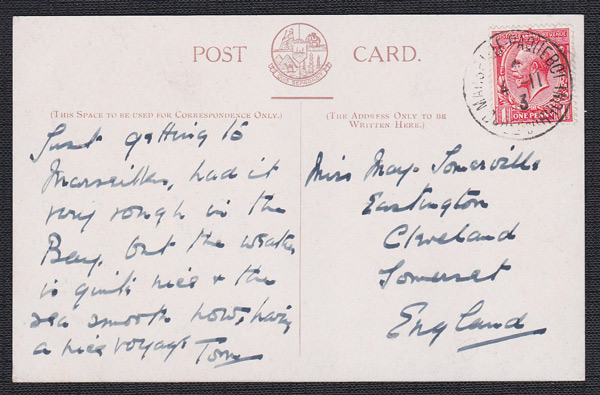 POST CARD.
(This Space to be used for Correspondence Only.)
(The Address Only to be
Written Here.)
Just getting to
Marseilles, had it
very rough in the
Bay, but the weather
is quite nice & the
sea smooth now, having
a nice voyage Tom
Miss May. Somerville
Eastington
Cleveland
Somerset
England
PAQUEBOT
4 - 11
3
ONE PENNY